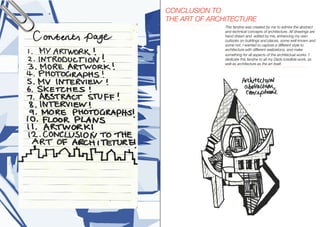 Contents page
1. MY ARTWORK!
2. INTRODUCTION!
3. MORE ARTWORK!
4. PHOTOGRAPHS!
5. MY INTERVIEW!
6. SKETCHES!
7. ABSTRACT STUFF!
8. INTERVIEW!
9. MORE PHOTOGRAPHS!
10. FLOOR PLANS
11. ARTWORK!
12. CONCLUSION TO THE
ART OF ARCHITETURE!
CONCLUSION TO
THE ART OF ARCHITECTURE
This fanzine was created by me to admire the abstract
and technical concepts of architecture. All drawings are
hand drawn and edited by me, embracing my own
outlooks on buildings and places, some well known and
some not. I wanted to capture a different style to
architecture with different
and make
something for all aspects of the architectural works. I
dedicate this fanzine to all my Dads incredible work, as
well as architecture as the art itself.
Architecture
abstraction,
conceptional